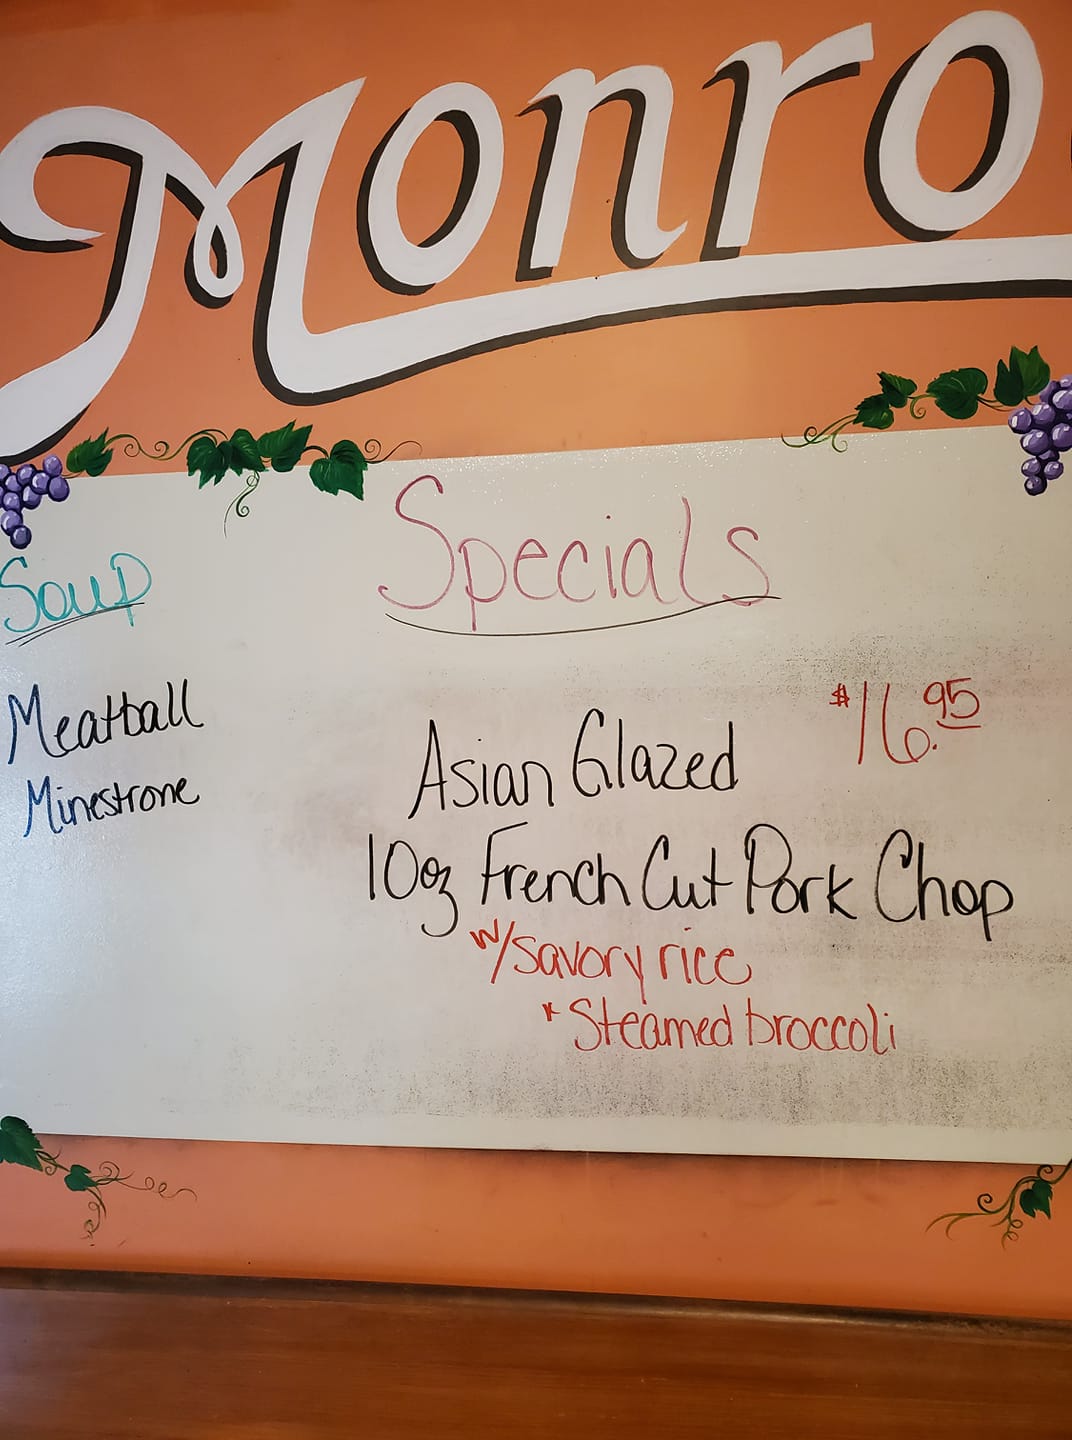 Monro
Soup
Meatball
Minestrone
Specials
$16.95
Asian Glazed
10oz French Cut Pork Chop
w/savory rice
* Steamed broccoli